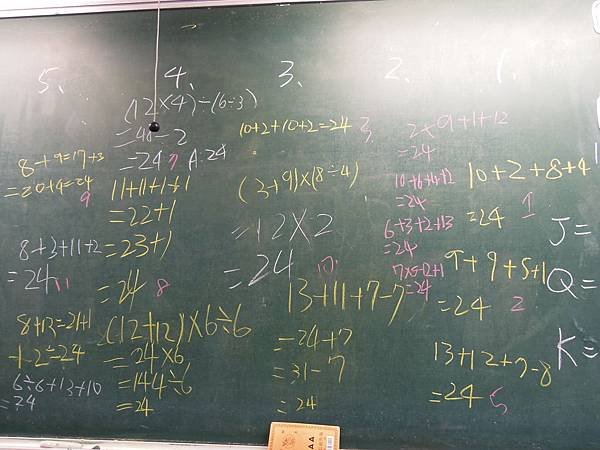 5、
8+9=17+3
=20+4=24
9
8+3+11+2
=24
11
8+13=21+1
6÷6+13+10
=24
4、
(12×4)÷(6÷3)
=48÷2
=24
7
A:24
11+11+1+1
=22+1
=23+1
=24
8
(12+12)×6÷6
=24×6
=144÷6
=24
3、
10+2+10+2=24
3
(3+9)×(8÷4)
=12×2
=24
10
13+11+7-7
=24+7
=31-7
=24
2、
2×9+1+12
=24
=24
6+3+2+13
=24
=24
1、
10+2+8+4
=24
1
9+9+5+1
=24
2
13+12+7-8
=24
5
J=
Q=
K=